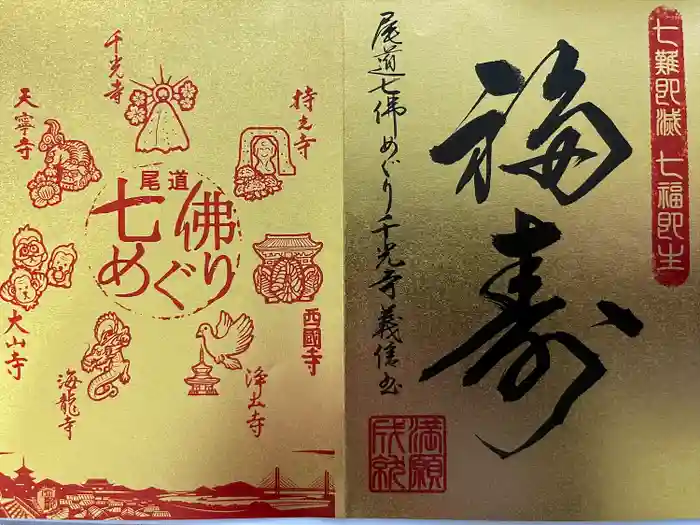 千光寺
持光寺
天寧寺
尾道
七佛
めぐり
西國寺
大山寺
海龍寺
浄土寺
七難即滅 七福即生
福寿
尾道七佛めぐり千光寺義信書
満願
成納